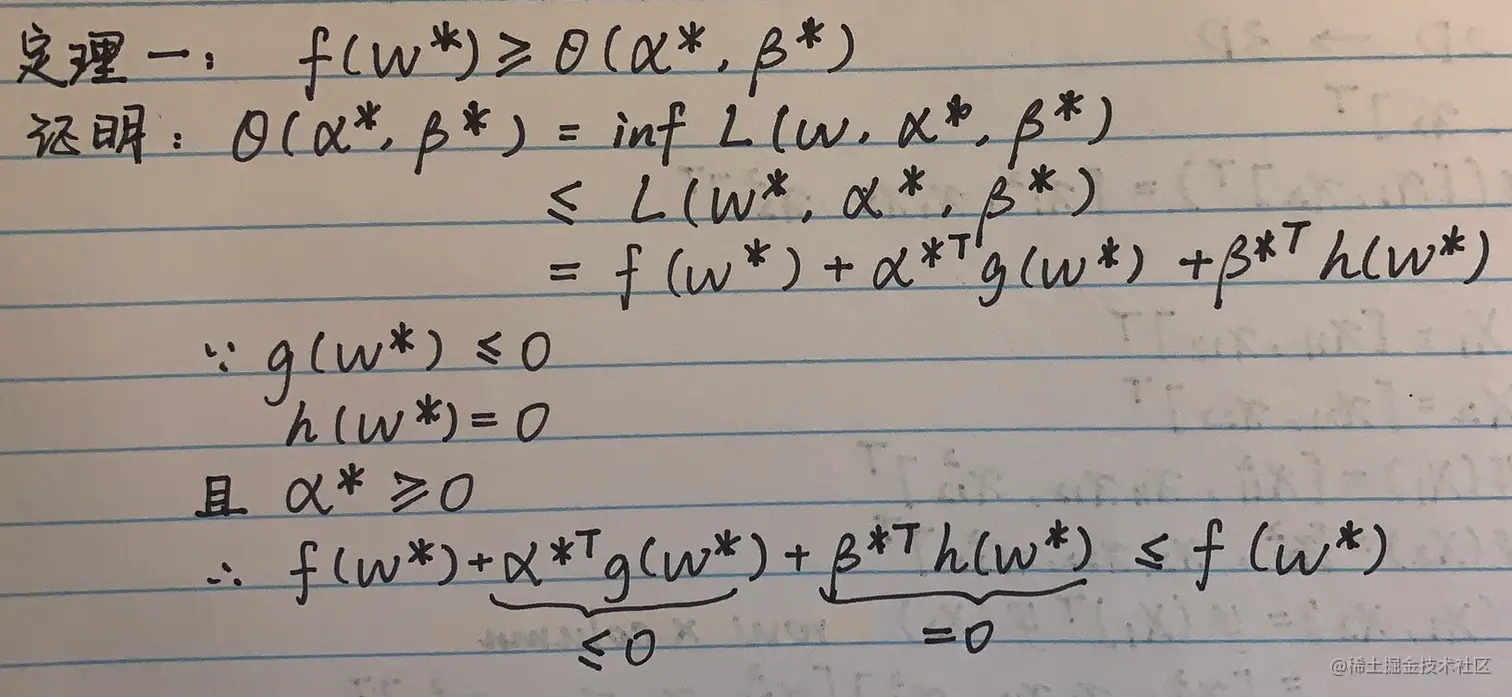 定理一： f(w*) ≥ θ(α*, β*)
证明： θ(α*, β*) = inf L(w, α*, β*)
≤ L(w*, α*, β*)
= f(w*) + α*ᵀg(w*) + β*ᵀh(w*)
∵ g(w*) ≤ 0
h(w*) = 0
且 α* ≥ 0
∴ f(w*) + α*ᵀg(w*) + β*ᵀh(w*) ≤ f(w*)
≤0 =0
@稀土掘金技术社区